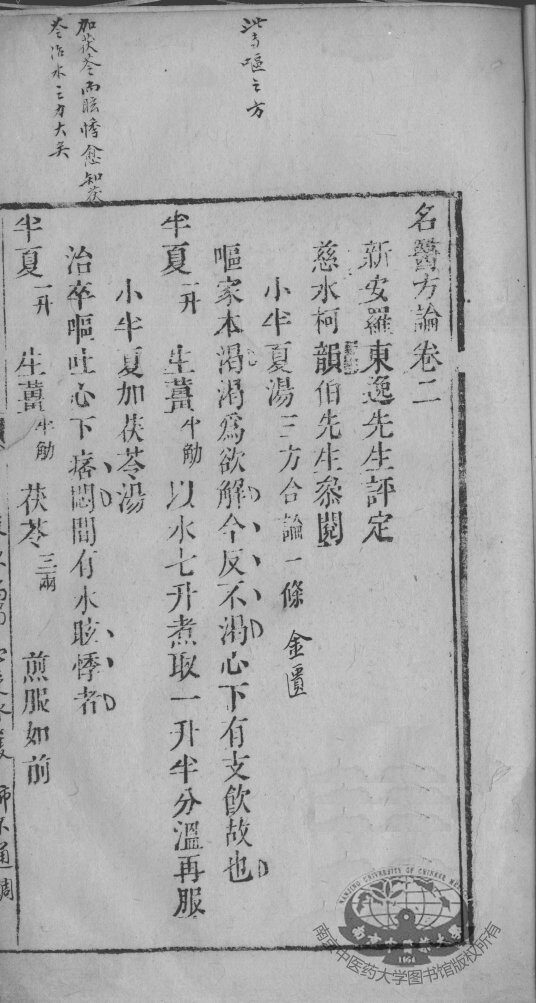 此与嘔之方
加茯苓而眩悸愈知茯
苓治水之力大矣
名醫方論卷二
新安羅東逸先生評定
慈水柯韻伯先生叅閱
小半夏湯三方合論一條 金匱
嘔家本渴渴爲欲解今反不渴心下有支飮故也
半夏一升 生薑半觔 以水七升煮取一升半分溫再服
小半夏加茯苓湯
治卒嘔吐心下痞悶間有水眩悸者
半夏一升 生薑半觔 茯苓三兩 煎服如前
NANJING UNIVERSITY OF CHINESE MEDICINE
1954
南京中医药大学图书馆版权所有